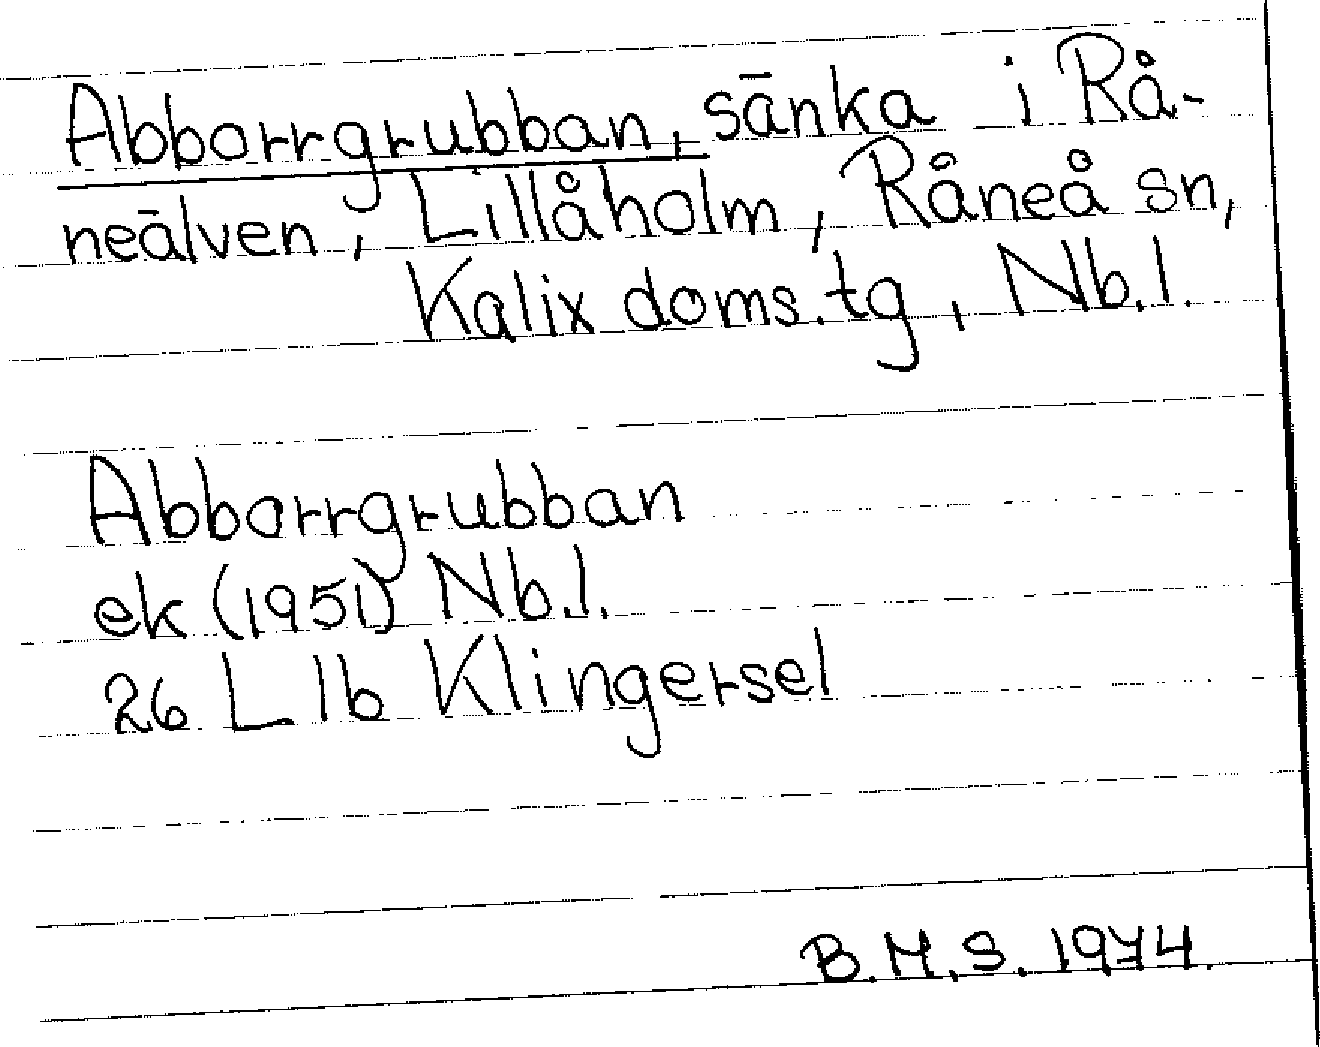 Abborrgrubban, sänka i Rå-
neälven, Lillåholm, Råneå sn,
Kalix doms.tg, Nb.l.
Abborrgrubban
ek (1951) Nb.l.
26 L lb Klingersel
B.M.S. 1974.